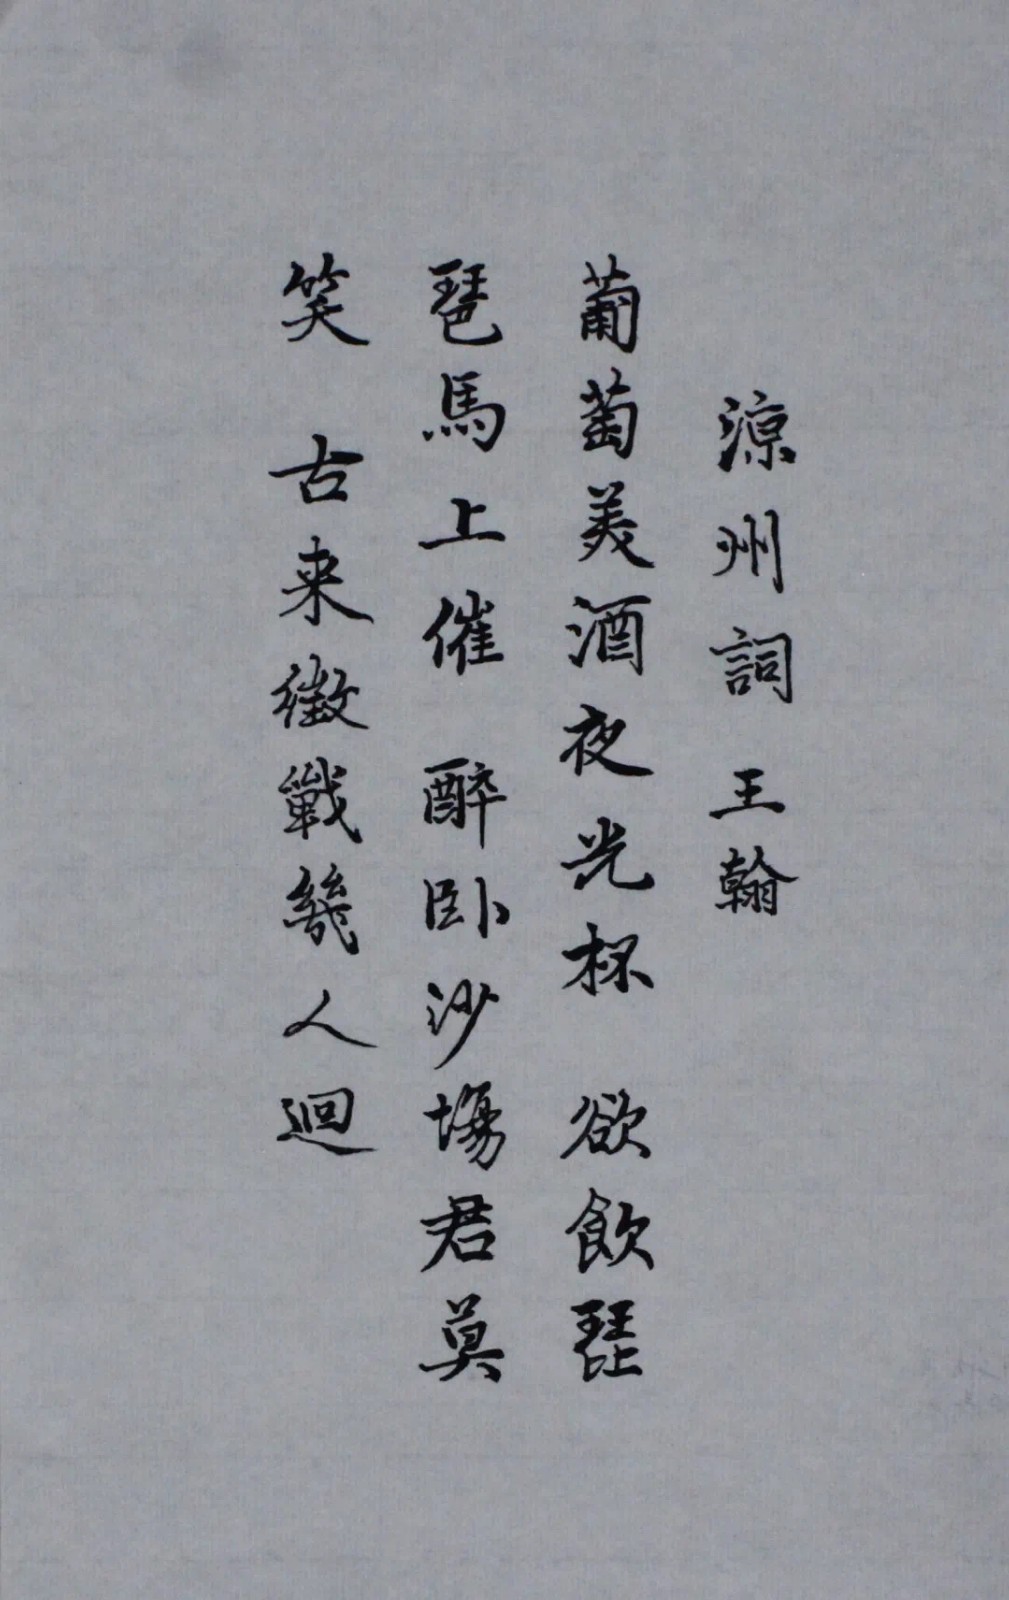 涼州詞 王翰
葡萄美酒夜光杯 欲飲琵
琶馬上催 醉卧沙場君莫
笑 古来徵戰幾人迴